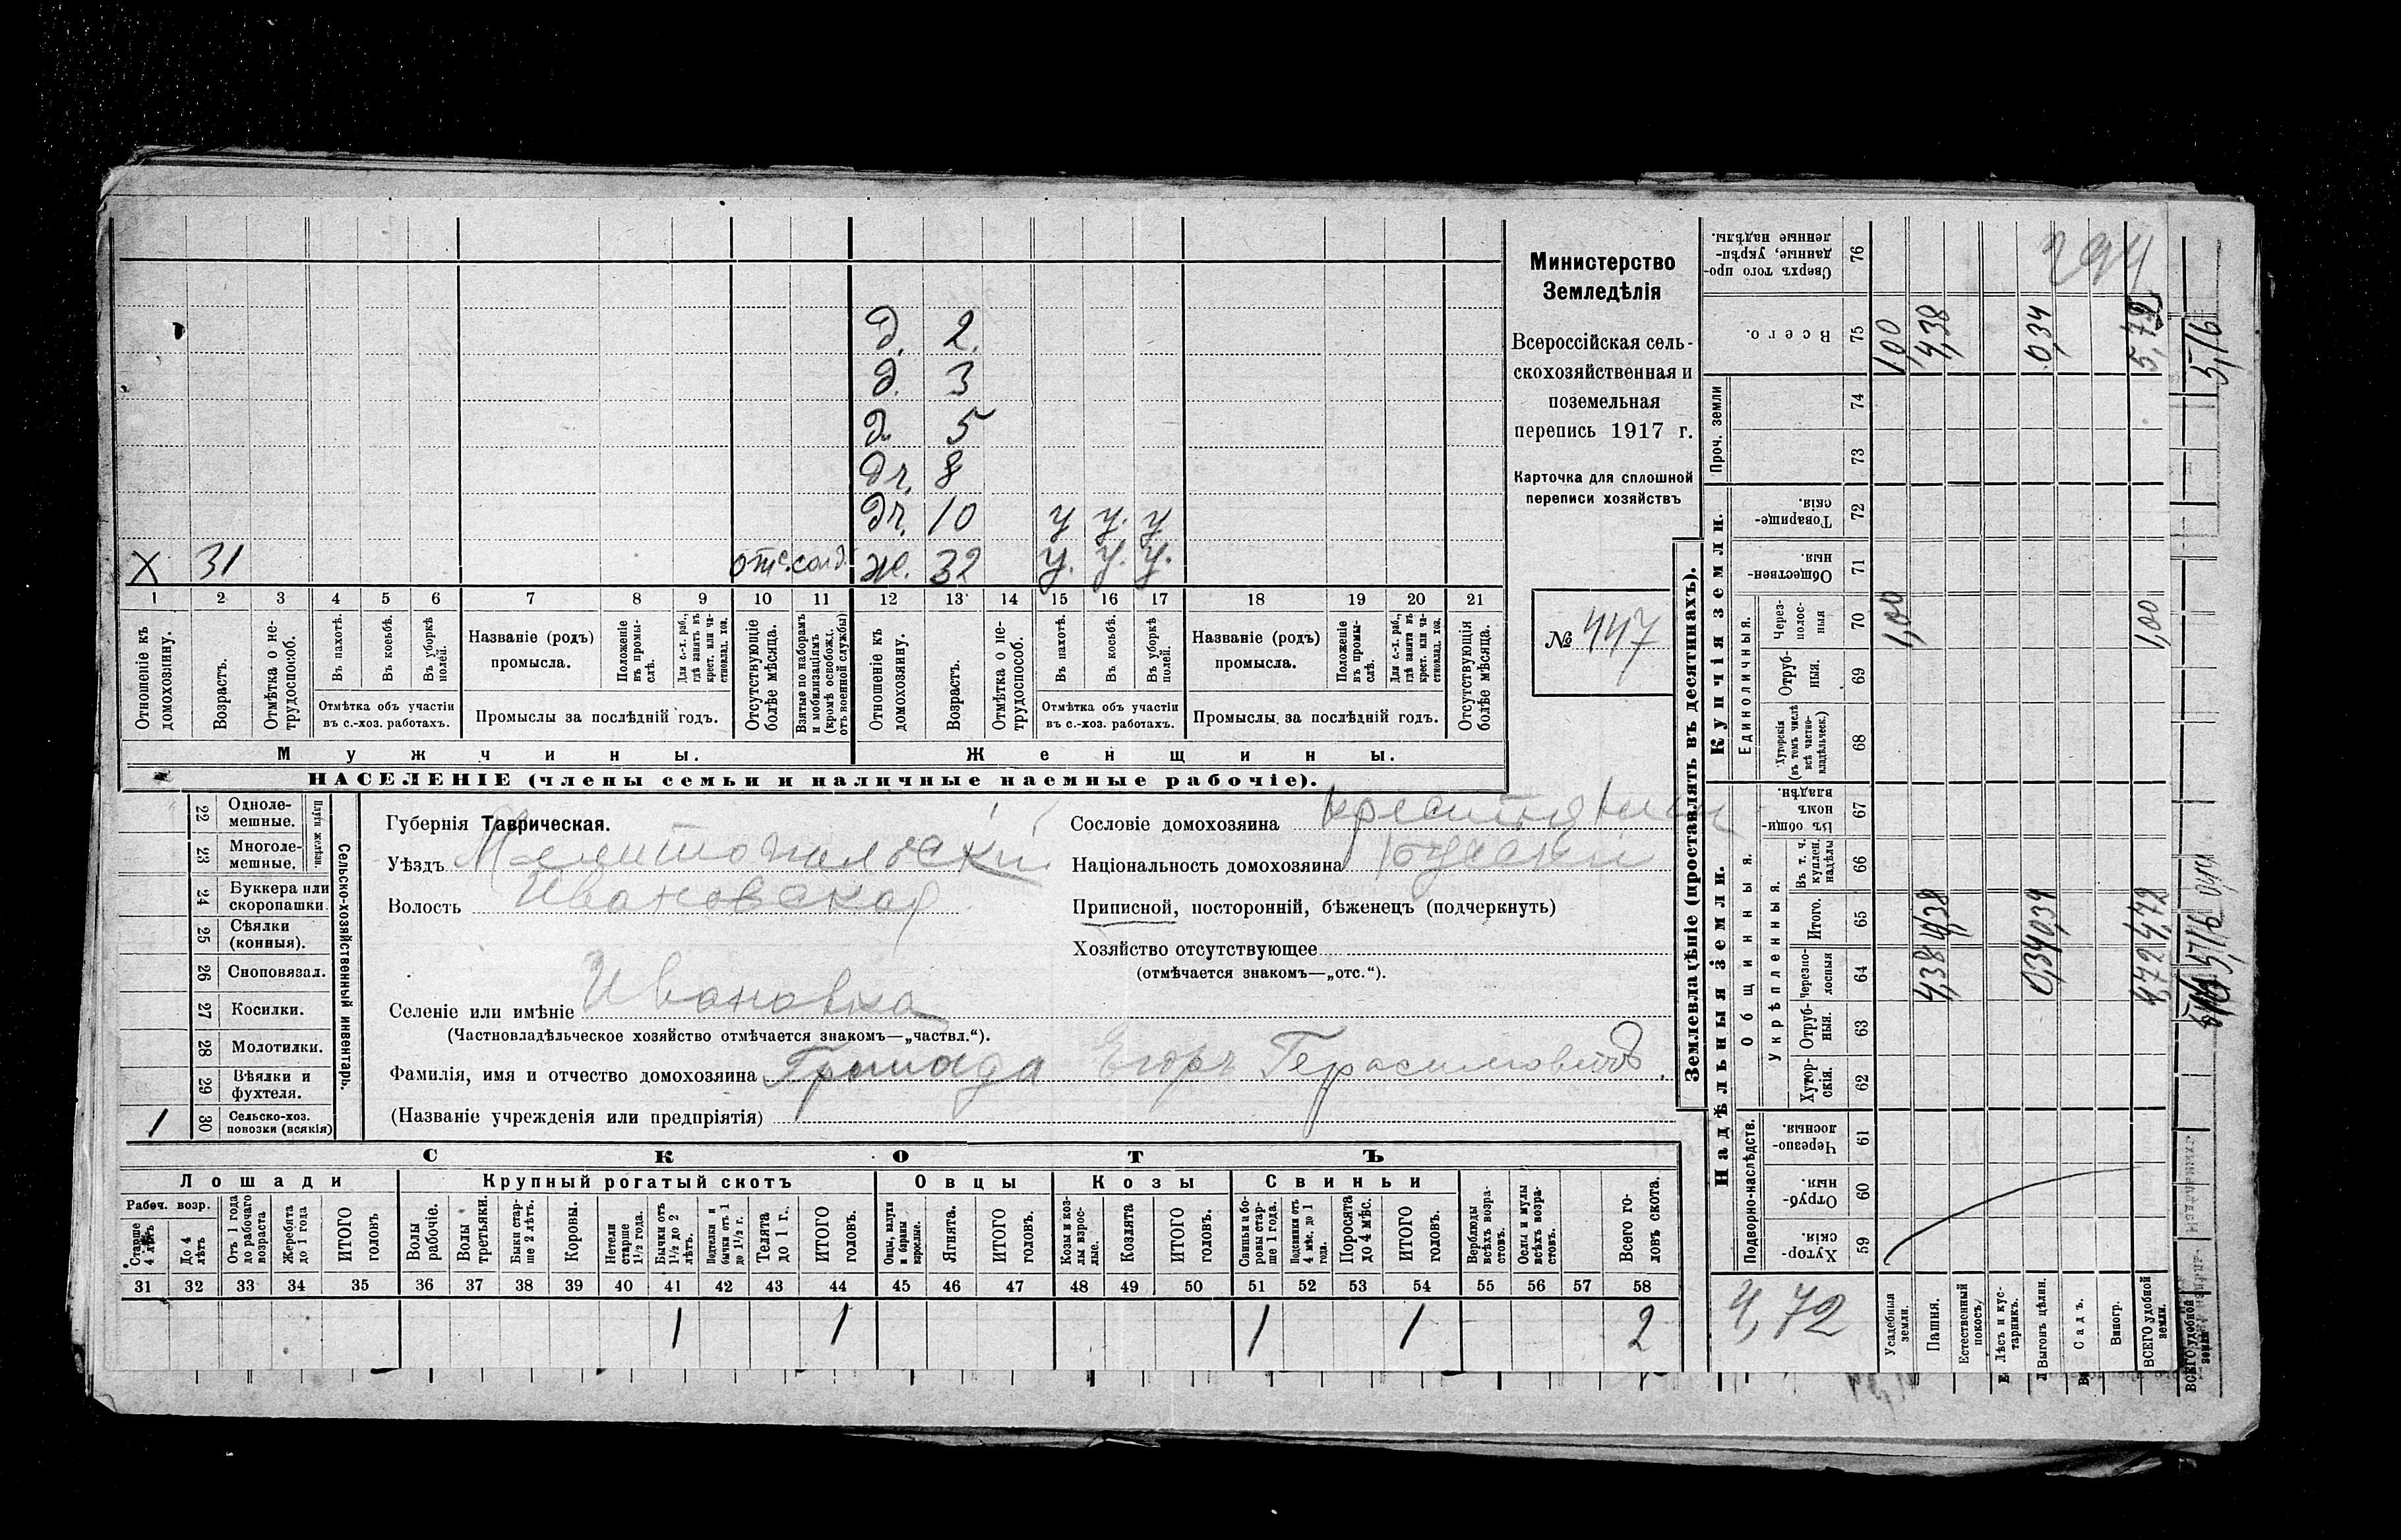 д. 2.
д. 3
д. 5
дч. 8
дч. 10 у у. у
х 31 отс. солд. ж. 32 у. у. у.
1 2 3 4 5 6 7 8 9 10 11 12 13 14 15 16 17 18 19 20 21
Отношеніе къ домохозяину.
Возрастъ.
Отмѣтка о не-трудоспособ.
Въ пахотѣ.
Въ косьбѣ.
Въ уборкѣ полей.
Отмѣтка объ участіи въ с.-хоз. работахъ.
Названіе (родъ) промысла.
Положеніе въ промы-слѣ.
Для с.-х. раб., гдѣ занятъ въ крест. или ча-стновлад. хоз.
Промыслы за послѣдній годъ.
Отсутствующіе болѣе мѣсяца.
Взятые по наборамъ и мобилизаціямъ (кромѣ освобожд. отъ военной службы)
Отношеніе къ домохозяину.
Возрастъ.
Отмѣтка о не-трудоспособ.
Въ пахотѣ.
Въ косьбѣ.
Въ уборкѣ полей.
Отмѣтка объ участіи въ с.-хоз. работахъ.
Названіе (родъ) промысла.
Положеніе въ промы-слѣ.
Для с.-х. раб., гдѣ занята въ крест. или ча-стновлад. хоз.
Промыслы за послѣдній годъ.
Отсутствующія болѣе мѣсяца.
Мужчины. Женщины.
НАСЕЛЕНІЕ (члены семьи и наличные наемные рабочіе).
Министерство
Земледѣлія
Всероссійская сель-
скохозяйственная и
поземельная
перепись 1917 г.
Карточка для сплошной
переписи хозяйствъ
№ 447
22 Одноле-мешные.
23 Многоле-мешные.
Плуги желѣзн.
24 Буккера или скоропашки.
25 Сѣялки (конныя).
26 Сноповязал.
27 Косилки.
28 Молотилки.
29 Вѣялки и фухтеля.
1 30 Сельско-хоз. повозки (всякія)
Сельско-хозяйственный инвентарь.
Губернія Таврическая.
Уѣздъ Мелитопольскій
Волость Ивановская
Селеніе или имѣніе Ивановка
(Частновладѣльческое хозяйство отмѣчается знакомъ—„частвл.“).
Фамилія, имя и отчество домохозяина Громада Егоръ Герасимовичъ.
(Названіе учрежденія или предпріятія)
Сословіе домохозяина крестьянин
Національность домохозяина русскій
Приписной, посторонній, бѣженецъ (подчеркнуть)
Хозяйство отсутствующее
(отмѣчается знакомъ—„отс.“).
СКОТЪ
Лошади Крупный рогатый скотъ Овцы Козы Свиньи
Рабоч. возр.
Старше 4 лѣтъ
До 4 лѣтъ
Отъ 1 года до рабочаго возраста
Жеребята до 1 года
ИТОГО головъ
Волы рабочіе.
Волы третьяки.
Быки стар-ше 2 лѣтъ.
Коровы.
Нетели старше 1½ года.
Бычки отъ 1½ до 2 лѣтъ.
Подтелки и бычки отъ 1 до 1½ г.
Телята до 1 г.
ИТОГО головъ.
Овцы, валухи и бараны взрослые.
Ягнята.
ИТОГО головъ.
Козы и коз-лы взрос-лые.
Козлята
ИТОГО головъ.
Свиньи и бо-ровы стар-ше 1 года.
Подсвинки отъ 4 мѣс. до 1 года.
Поросята до 4 мѣс.
ИТОГО головъ.
Верблюды всѣхъ возра-стовъ.
Ослы и мулы всѣхъ возра-стовъ.
Всего го-ловъ скота.
31 32 33 34 35 36 37 38 39 40 41 42 43 44 45 46 47 48 49 50 51 52 53 54 55 56 57 58
1 1 1 1 2
Землевладѣніе (проставлять въ десятинахъ).
Надѣльныя земли. Купчія земли. Проч. земли
Подворно-наслѣдств. Общинныя. Единоличныя.
Укрѣпленныя.
59 Хутор-скія.
60 Отруб-ныя.
61 Черезпо-лосныя.
62 Хутор-скія.
63 Отруб-ныя.
64 Черезпо-лосныя
65 Итого.
66 Въ т. ч. куплен. надѣлы
67 Въ общин-номъ владѣн.
68 Хуторскія (въ томъ числѣ всѣ частно-владѣльческ.)
69 Отруб-ныя.
70 Через-полос-ныя
71 Обществен-ныя
72 Товарище-скія.
73
74
75 Всего.
76 Сверхъ того про-данные, укрѣп-ленные надѣлы.
4,72
Усадебныя земли. 1,00 1,00
Пашня. 4,38 4,38 4,38
Естественный покосъ.
Лѣсъ и кус-тарникъ.
Выгонъ цѣлин. 0,34 0,34 0,34
Садъ.
Виногр.
ВСЕГО удобной земли. 4,72 4,72 1,00 5,72
294
ВСЕГО удобной земли
5,16 5,16